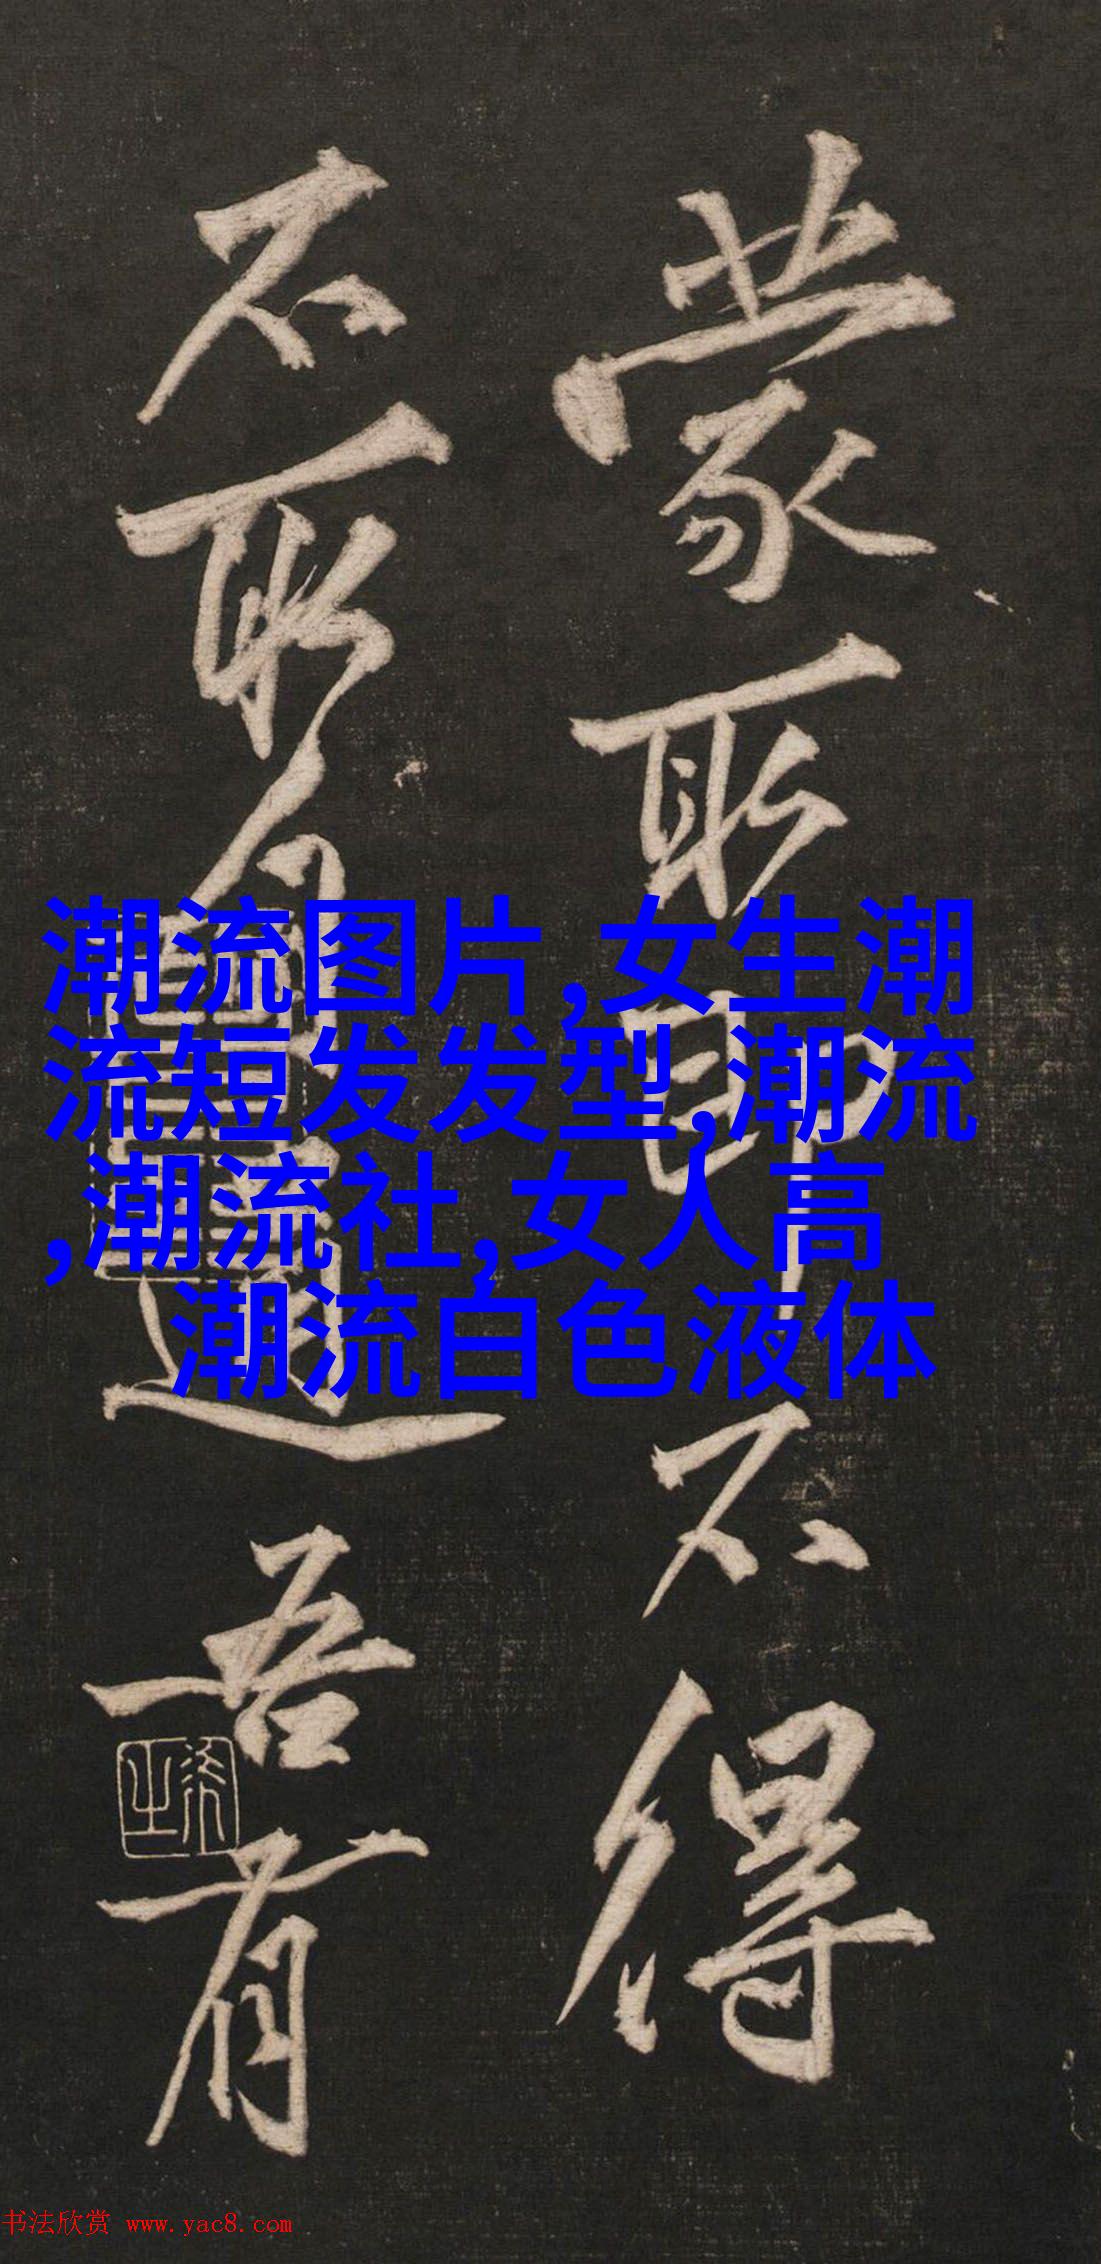 蒙 不得
不 吾有
潮流图片,女生潮
流短发发型,潮流
,潮流社,女人高
潮流白色液体
书法欣赏 www.yac8.com